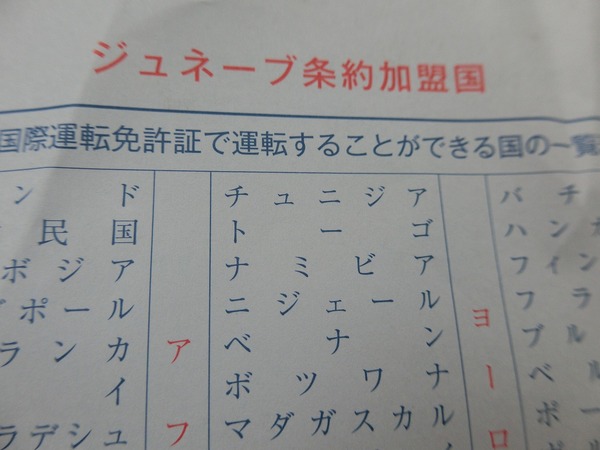 ジュネーブ条約加盟国
国際運転免許証で運転することができる国の一覧
ンド
民国
ボジア
ポール
ランカ
イ
ラデシュ
アフ
チュニジア
トーゴ
ナミビア
ニジェール
ベナン
ボツワナ
マダガスカル
ヨーロ
バチ
ハンガ
フィン
フラ
ブル
ベル
ポー